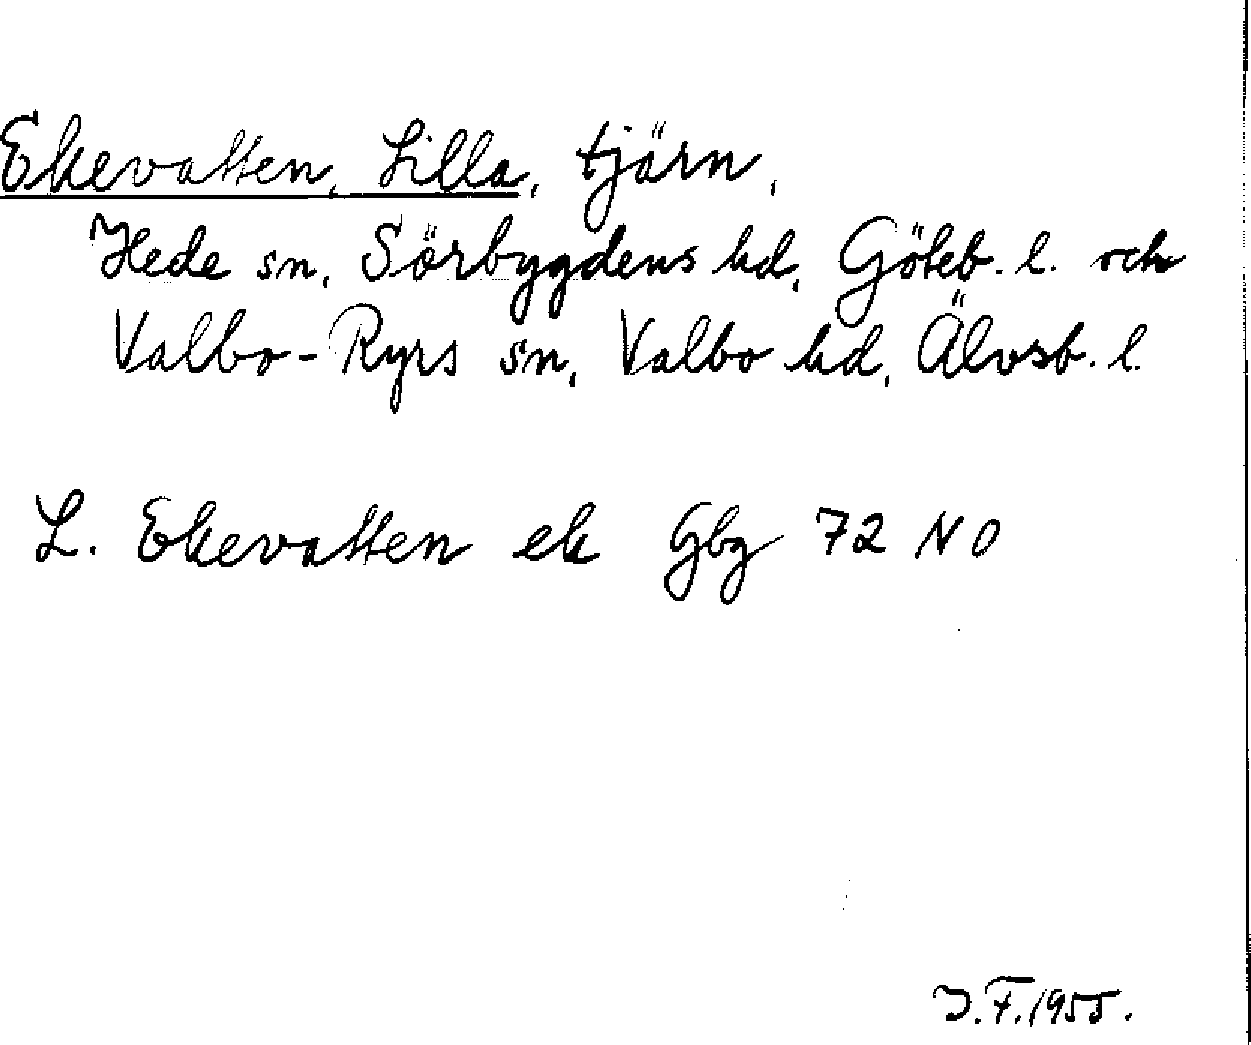 Ekevatten, Lilla, tjärn,
Hede sn, Sörbygdens hd, Göteb. l. och
Valbo-Ryrs sn, Valbo hd, Älvsb. l.
L. Ekevatten ek Gbg 72 NO
J.F. 1955.